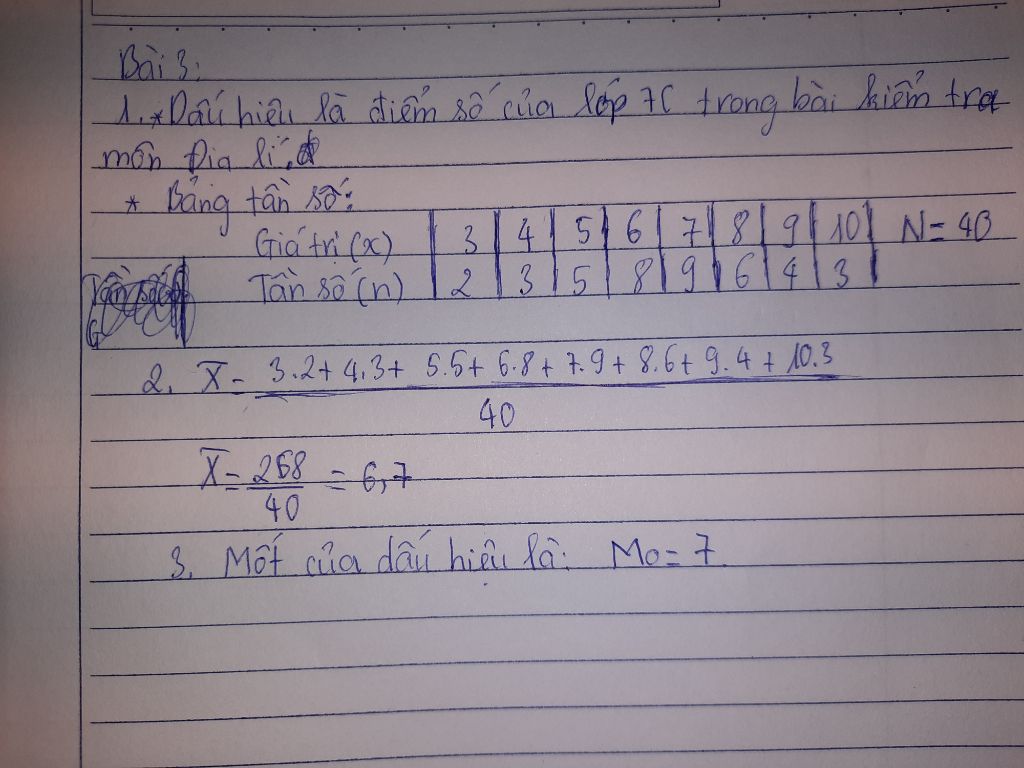 Bài 3:
1. * Dấu hiệu là điểm số của lớp 7C trong bài kiểm tra
môn Địa lí.
* Bảng tần số:
Giá trị (x) | 3 | 4 | 5 | 6 | 7 | 8 | 9 | 10 | N = 40
Tần số (n) | 2 | 3 | 5 | 8 | 9 | 6 | 4 | 3 |
2. X̄ = 3.2 + 4.3 + 5.5 + 6.8 + 7.9 + 8.6 + 9.4 + 10.3
40
X̄ = 268 = 6,7
40
3. Mốt của dấu hiệu là: Mo = 7